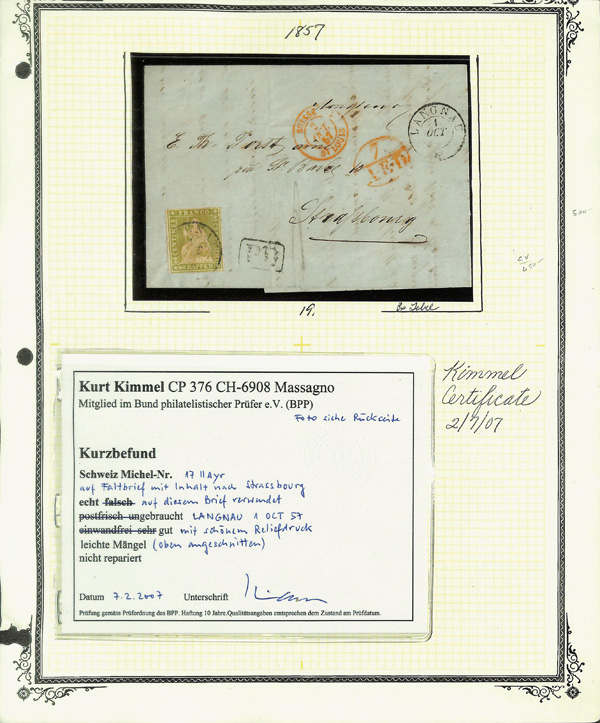 1857
Monsieur
LANGNAU
1
OCT
SUISSE
ST LOUIS
7
E. Th.
Strassbourg
FRANCO
RAPPEN
PD
19.
500-
CV
650-
Kimmel
Certificate
2/7/07
Kurt Kimmel CP 376 CH-6908 Massagno
Mitglied im Bund philatelistischer Prüfer e.V. (BPP)
Foto siehe Rückseite
Kurzbefund
Schweiz Michel-Nr. 17 II Ayr
auf Faltbrief mit Inhalt nach Strassbourg
echt falsch auf diesem Brief verwendet
postfrisch ungebraucht LANGNAU 1 OCT 57
einwandfrei sehr gut mit schönem Reliefdruck
leichte Mängel (oben angeschnitten)
nicht repariert
Datum 7.2.2007 Unterschrift
Prüfung gemäss Prüfordnung des BPP. Haftung 10 Jahre.Qualitätsangaben entsprechen dem Zustand am Prüfdatum.